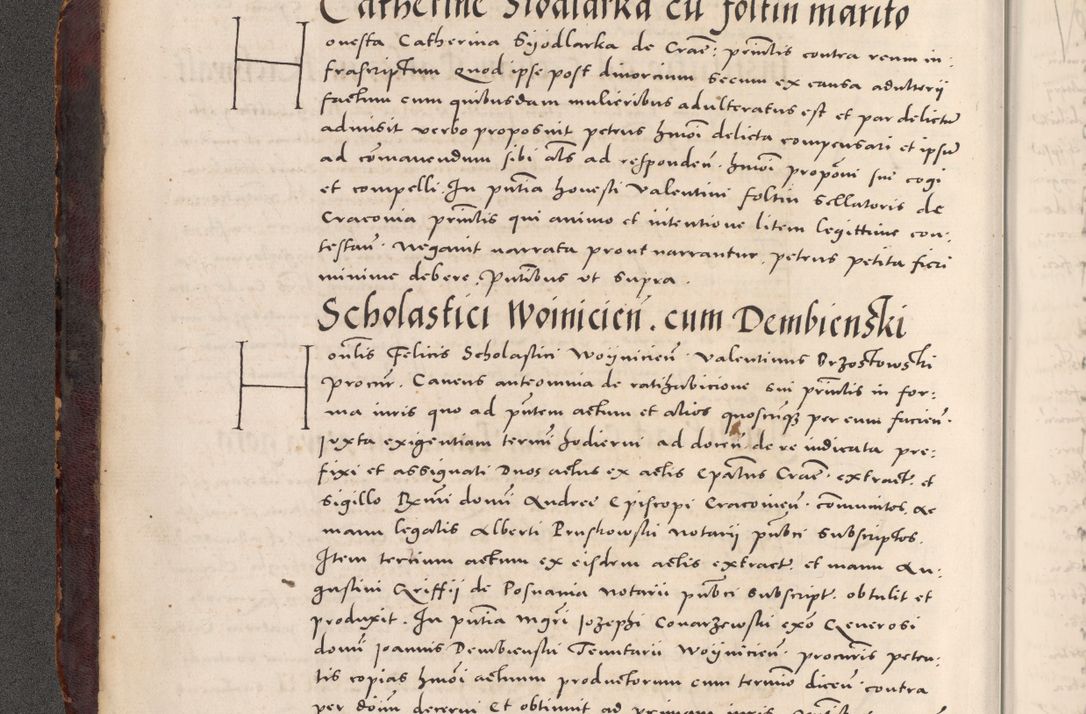 Catherine Siodlarka cũ foltin marito
Honesta Catherina Syodlarka de Craē prīntis contra reum in:
frascriptum Quod ipse post divorcium secum ex causa adulterii
factum cum quibusdam mulieribus adulteratus est et par delictũ
admisit verbo proposuit petens hmōi delicta compensari et ipsũ
ad cōmanendum sibi als ad respondeñ. hmōi propōni sue cogi
et compelli. In pñtia honesti Valentini foltin Sellatoris de
Cracovia prīntis qui animo et intentione litem legittime con:
testañ. Negavit narrata prout narrantur, petens petita fieri
minime debere. Pntibus ut supra.
Scholastici Woinicieñ. cum Dembienski
Honlis Felicis Scholastici Woynicieñ. Valentinus Brzostowski
procur. Cavens anteomnia de ratihabicione sui prīntis in for:
ma iuris quo ad pñtem actum et alios quoscũqz per eum facien.
iuxta exigentiam termi hodierni ad doceñ. de re iudicata pre:
fixi et assignati Duos actus ex actis Epatus Craē extract. et
sigillo Rxmi domi Andree Episcopi Cracovieñ. cōmunitos, ac
manu legalis Alberti Pruskowski notarii pubci subscriptos.
Item tertium actum ex eisdem actis extract. et manu Au:
gustini Griffii de Posnania notarii pubci subscript. obtulit et
produxit. In pñtia Mgri Jozephi Conarzewski exō Generosi
domi Joannis Dembienski Tenutarii Woynicieñ. procuris peten:
tis copias hmōi actuum productorum cum termino diceñ. contra
per dom̃ decerni Et obtinuit ad primam iuris